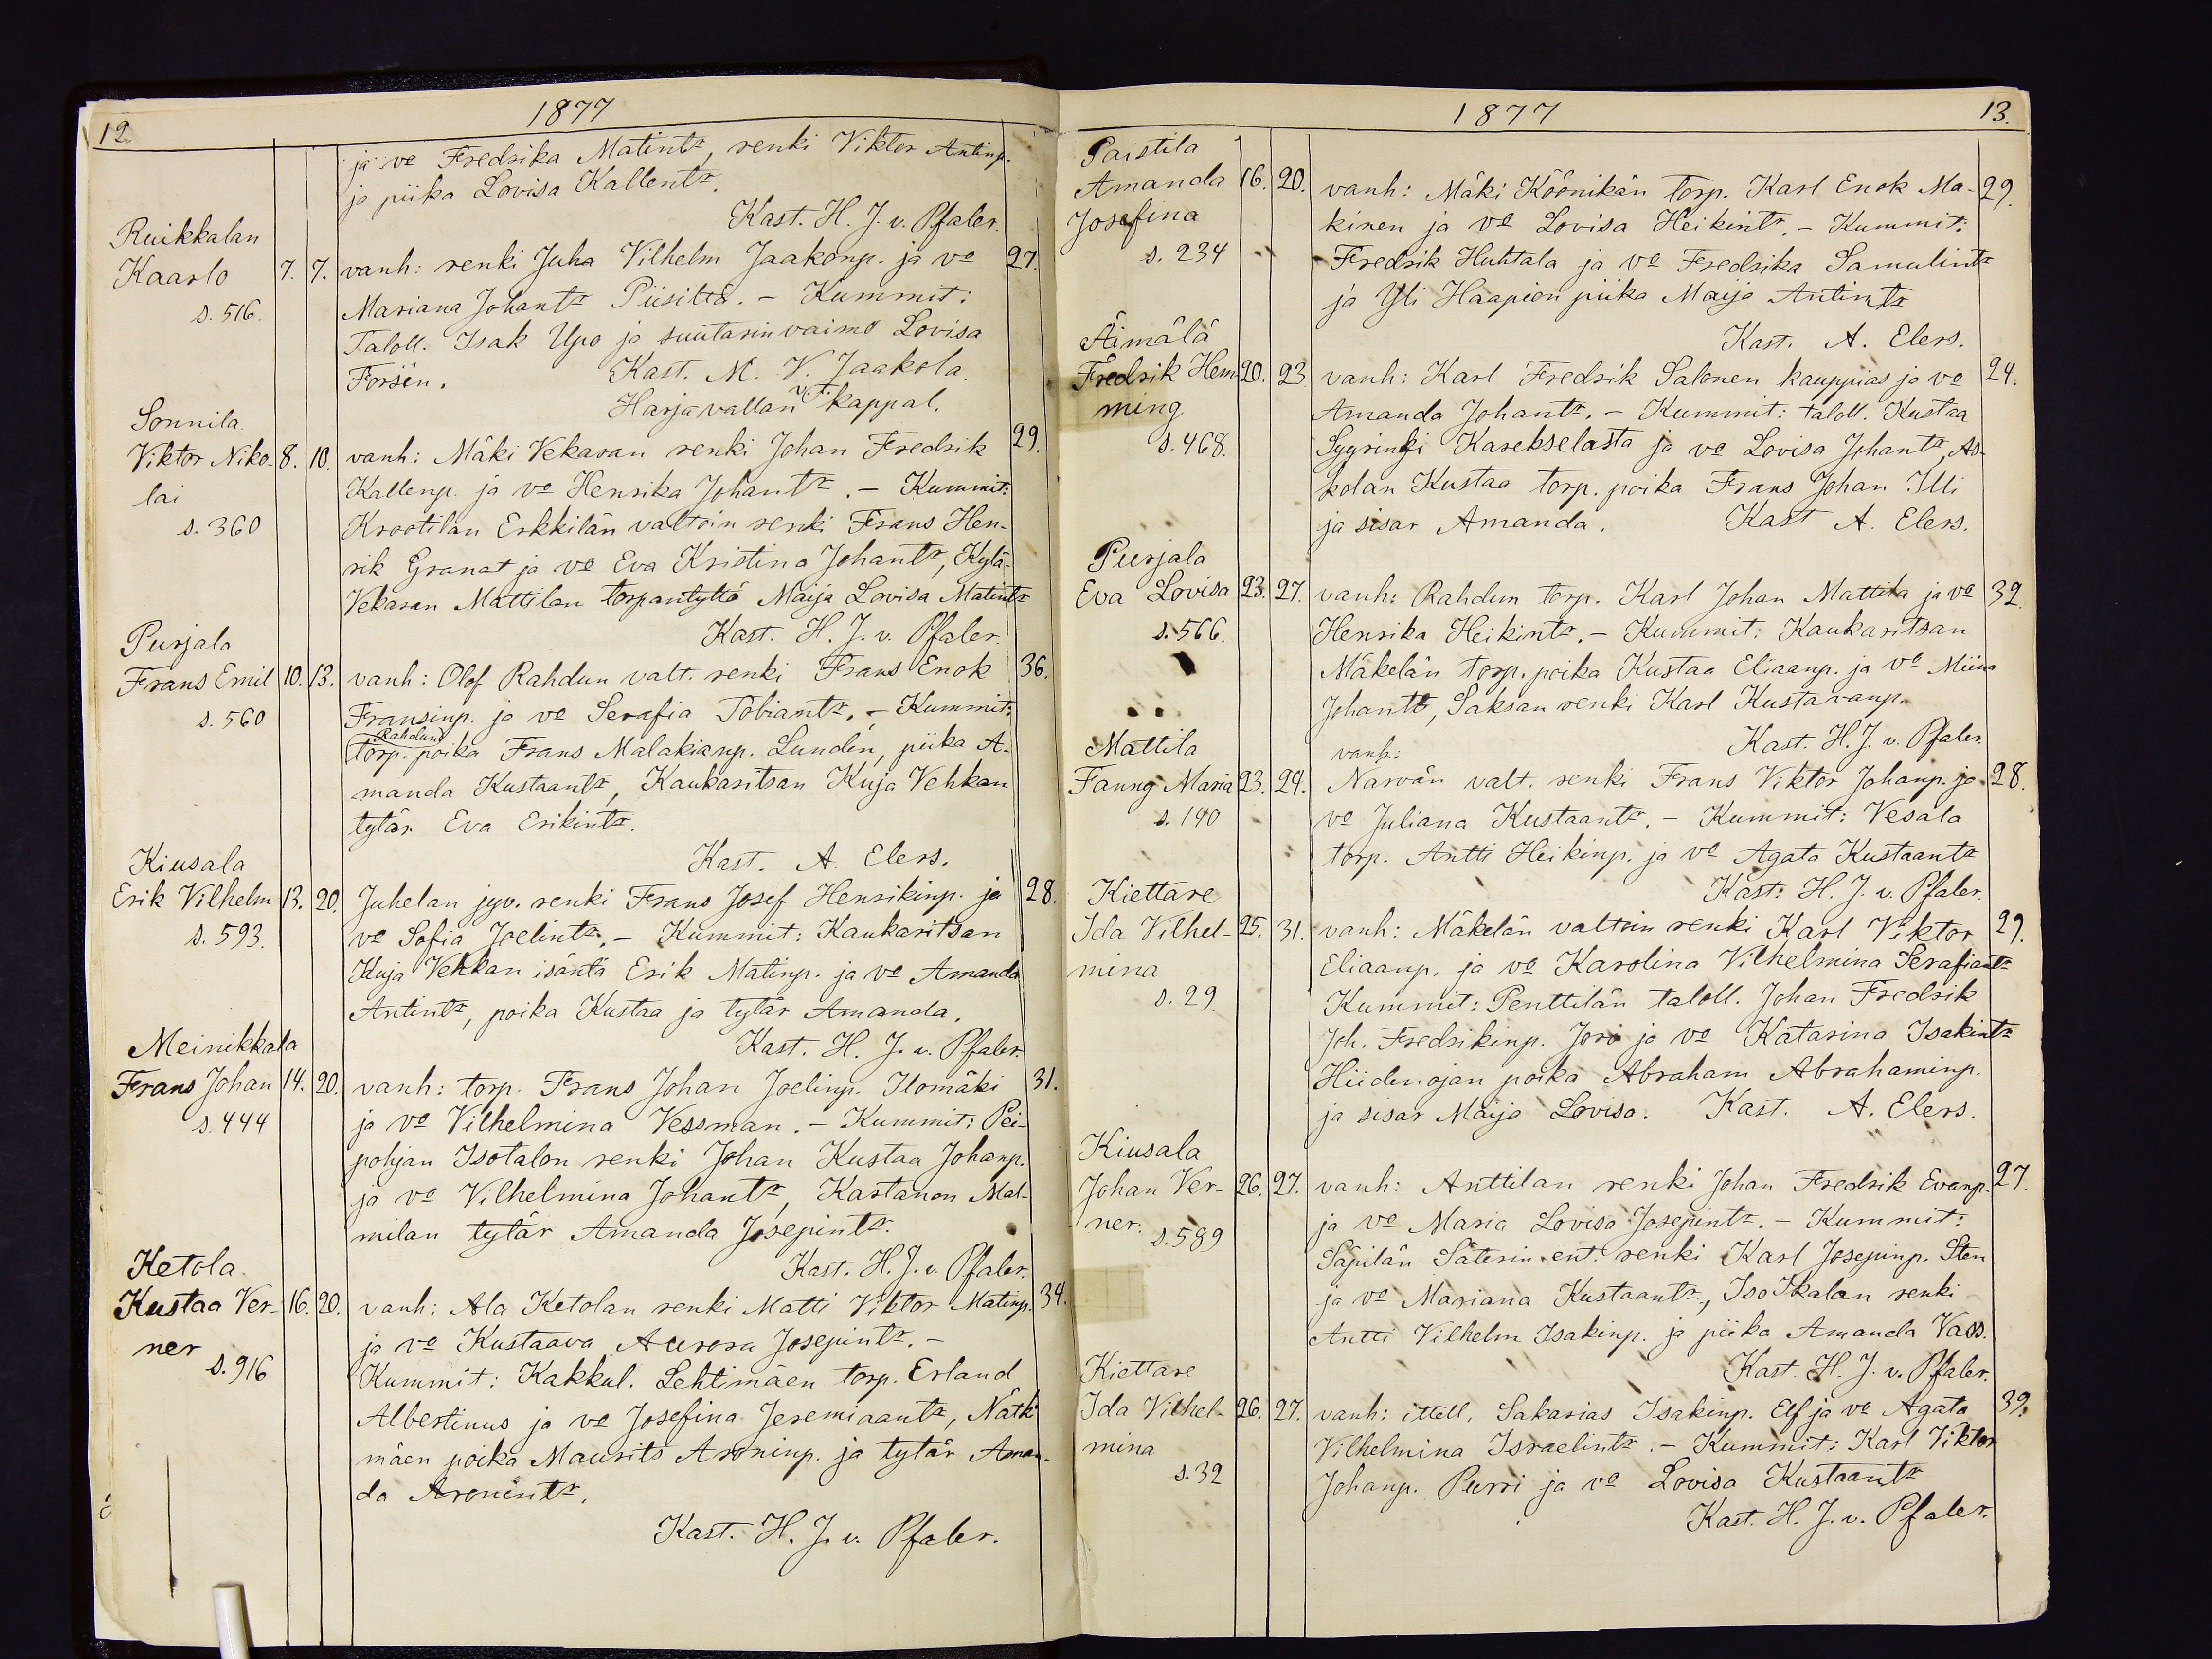 12.
1877
ja vo Fredrika Matintr, renki Viktor Antinp.
ja piika Lovisa Kallentr.
Kast. H. J. v. Pfaler.
Ruikkalan
Kaarlo 7. 7. vanh: renki Juha Vilhelm Jaakonp. ja vo 27.
s. 516. Mariana Johantr Piisiltä. - Kummit:
Taloll. Isak Upo ja suutarin vaimo Lovisa
Forsén. Kast. M. V. Jaakola.
Harjavallan v.t. kappal.
Sonnila
Viktor Niko- 8. 10. vanh: Mäki Vekaran renki Johan Fredrik 29.
lai Kallenp. ja vo Henrika Johantr. - Kummit:
s. 360 Krootilan Erkkilän valtoin renki Frans Hen-
rik Granat ja vo Eva Kristina Johantr, Kylä-
Vekaran Mattilan torpantyttö Maija Lovisa Matintr
Kast. H. J. v. Pfaler.
Purjala
Frans Emil 10. 13. vanh: Olof Rahdun valt. renki Frans Enok 36.
s. 560 Fransinp. ja vo Serafia Tobiantr. - Kummit:
Rahdun
Torp. poika Frans Malakianp. Lundén, piika A-
manda Kustaantr, Kaukaritsan Kuja Vehkan
tytär Eva Erikintr.
Kast. A. Elers.
Kiusala
Erik Vilhelm 13. 20. Juhelan jyv. renki Frans Josef Henrikinp. ja 28.
s. 593. vo Sofia Joelintr. - Kummit: Kaukaritsan
Kuja Vehkan isäntä Erik Matinp. ja vo Amanda
Antintr, poika Kustaa ja tytär Amanda.
Kast. H. J. v. Pfaler.
Meinikkala
Frans Johan 14. 20. vanh: torp. Frans Johan Joelinp. Ilomäki 31.
s. 444 ja vo Vilhelmina Vessman. - Kummit: Pei-
pohjan Isotalon renki Johan Kustaa Johanp.
ja vo Vilhelmina Johantr, Kartanon Mal-
milan tytär Amanda Josepintr.
Kast. H. J. v. Pfaler.
Ketola
Kustaa Ver- 16. 20. vanh: Ala Ketolan renki Matti Viktor Matinp. 34.
ner ja vo Kustaava Aurora Josepintr. -
s. 916 Kummit: Kakkul. Lehtimäen torp. Erland
Albertinus ja vo Josefina Jeremiaantr, Nätki
mäen poika Maurits Aroninp. ja tytär Aman-
da Aronintr.
Kast. H. J. v. Pfaler.
1877
13.
Paistila
Amanda 16. 20. vanh: Mäki Köönikän torp. Karl Enok Mä- 29.
Josefina kinen ja vo Lovisa Heikintr. - Kummit:
s. 234 Fredrik Huhtala ja vo Fredrika Samulintr
ja Yli Haapion piika Maija Antintr
Kast. A. Elers.
Äimälä
Fredrik Hem- 20. 23 vanh: Karl Fredrik Salonen kauppias ja vo 24.
ming Amanda Johantr. - Kummit: taloll. Kustaa
s. 468. Sygrinki Karekselasta ja vo Lovisa Johantr, As-
kolan Kustaa torp. poika Frans Johan Illi
ja sisar Amanda. Kast A. Elers.
Purjala
Eva Lovisa 23. 27. vanh: Rahdun torp. Karl Johan Mattila ja vo 32.
s. 566. Henrika Heikintr. - Kummit: Kaukaritsan
Mäkelän torp. poika Kustaa Eliaanp. ja vo Miina
Johantr, Saksan renki Karl Kustavanp.
Kast. H. J. v. Pfaler.
Mattila vanh:
Fanny Maria 23. 24. Narvän valt. renki Frans Viktor Johanp. ja 28.
s. 140 vo Juliana Kustaantr. - Kummit: Vesala
torp. Antti Heikinp. ja vo Agata Kustaantr
Kast: H. J. v. Pfaler.
Kiettare
Ida Vilhel- 25. 31. vanh: Mäkelän valtoin renki Karl Viktor 29.
mina Eliaanp. ja vo Karolina Vilhelmina Serafiantr
s. 29. Kummit: Penttilän taloll. Johan Fredrik
Joh. Fredrikinp. Jori ja vo Katarina Isakintr
Hiidenojan poika Abraham Abrahaminp.
ja sisar Maija Lovisa. Kast. A. Elers.
Kiusala
Johan Ver- 26. 27. vanh: Anttilan renki Johan Fredrik Evanp. 27.
ner. ja vo Maria Lovisa Josepintr. - Kummit:
s. 589 Säpilän Säterin ent. renki Karl Josepinp. Sten
ja vo Mariana Kustaantr, Iso Ikalan renki
Antti Vilhelm Isakinp. ja piika Amanda Vass.
Kast. H. J. v. Pfaler.
Kiettare
Ida Vilhel- 26. 27. vanh: ittell. Sakarias Isakinp. Elf ja vo Agata 39.
mina Vilhelmina Israelintr. - Kummit: Karl Viktor
s. 32 Johanp. Purri ja vo Lovisa Kustaantr
Kast. H. J. v. Pfaler.